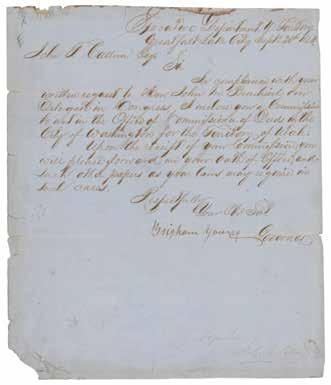 Department
Great Salt Lake City Sept 20th
John F. Callan Esqr
Sir
In compliance with your
written request to Hon John M. Bernhisel our
Delegate in Congress, I inclose you a Commission
to act in the Office of Commissioner of Deeds in the
City of Washington for the Territory of Utah.
Upon the receipt of your Commission you
will please forward me your Oath of Office, and
such other papers as your laws may require in
such cases.
Respectfully
Your Obt Svt
Brigham Young Governor